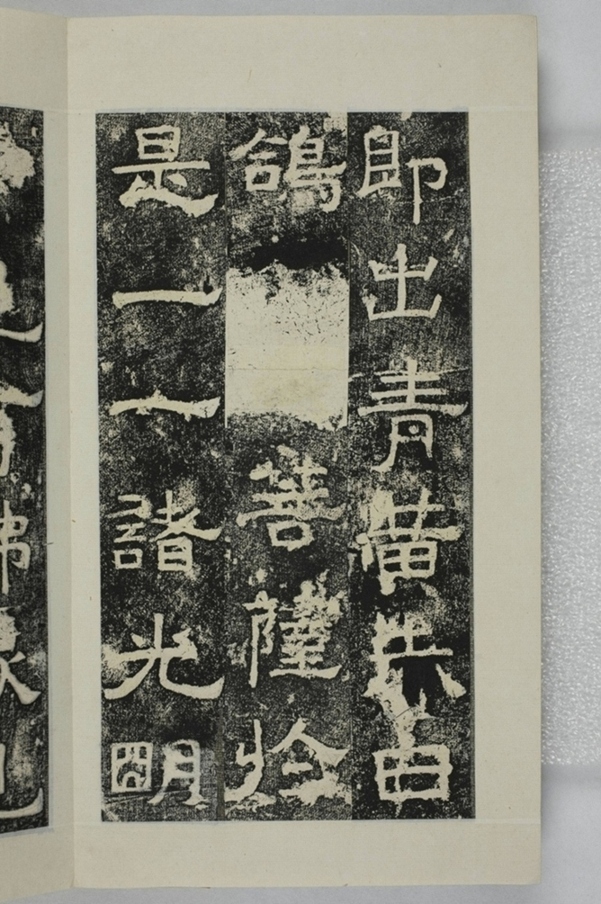 即出青黃赤白
鴿菩薩於
是一一諸光明